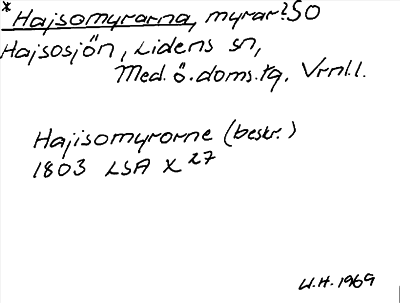 * Hajsomyrarna, myrar? SO
Hajsosjön, Lidens sn,
Med. ö. doms. tg. Vrnl.l.
Hajisomyrorne (beskr.)
1803 LSA X 27
W.H. 1969